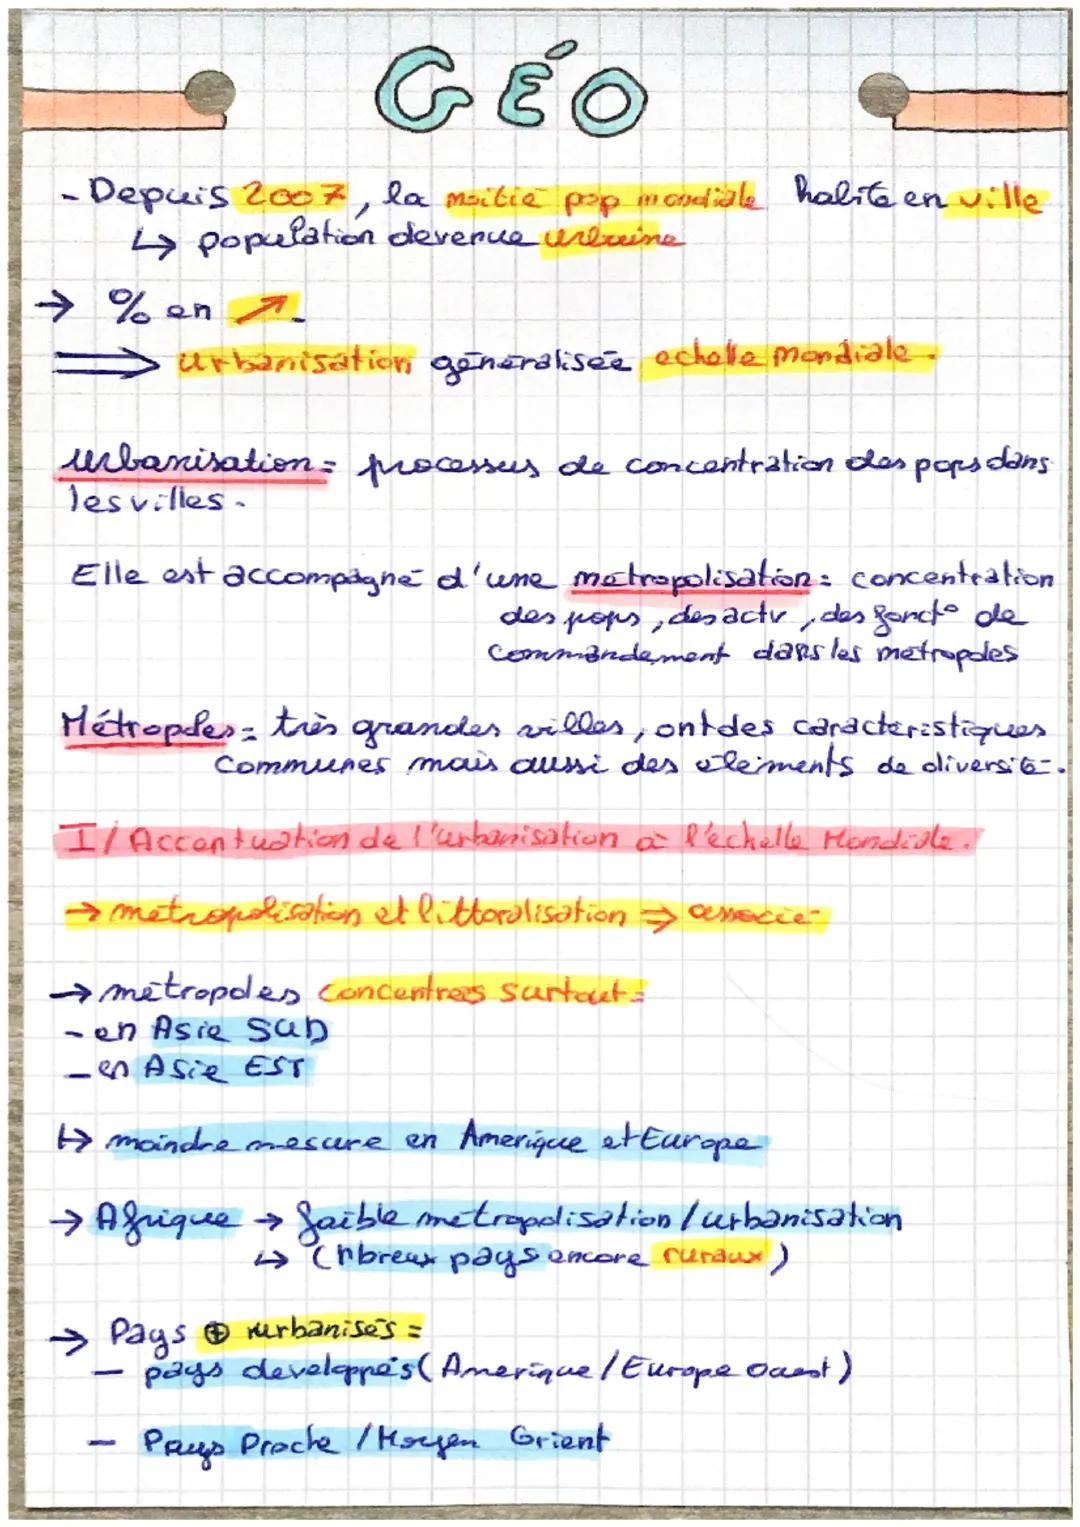 GÉO
- Depuis 2007, la moitié pop mondiale habite en ville
↳ population devenue urbaine
→ % en ↗
⟹ Urbanisation généralisée echelle mondiale.
Urbanisation = processus de concentration des pops dans
les villes.
Elle est accompagné d'une métropolisation = concentration
des pops, des actv, des fonct° de
commandement dans les métropoles
Métropoles = très grandes villes, ont des caractéristiques
communes mais aussi des éléments de diversité.
I/ Accentuation de l'urbanisation à l'échelle Mondiale.
→ métropolisation et littoralisation ⇒ associé
→ métropoles concentrées surtout =
- en Asie SUD
- en Asie EST
↳ moindre mesure en Amerique et Europe
→ Afrique → faible métropolisation / urbanisation
↳ (nbreux pays encore ruraux)
→ Pays ⊕ urbanisés =
- pays developpés (Amerique / Europe Ouest)
- Pays Proche / Moyen Orient